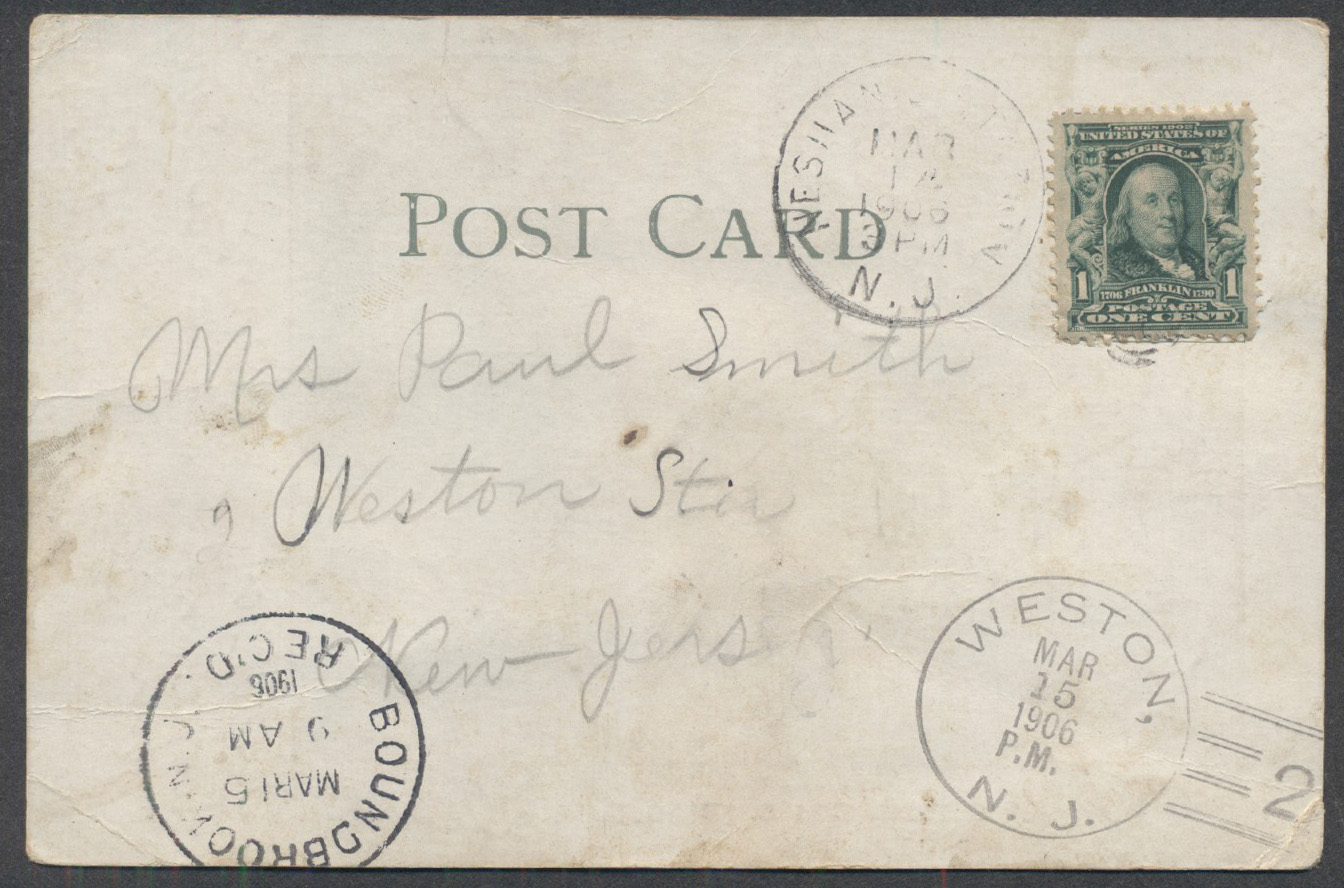 SERIES 1902
UNITED STATES OF
AMERICA
1 1706 FRANKLIN 1790 1
POSTAGE
ONE CENT
MAR
1906
PM
N. J.
POST CARD
Mrs Paul Smith
Weston
New Jers
BOUNDBROOK N.J.
MAR 15
9 AM
1906
REC'D
WESTON,
MAR
15
1906
P.M.
N. J.
2